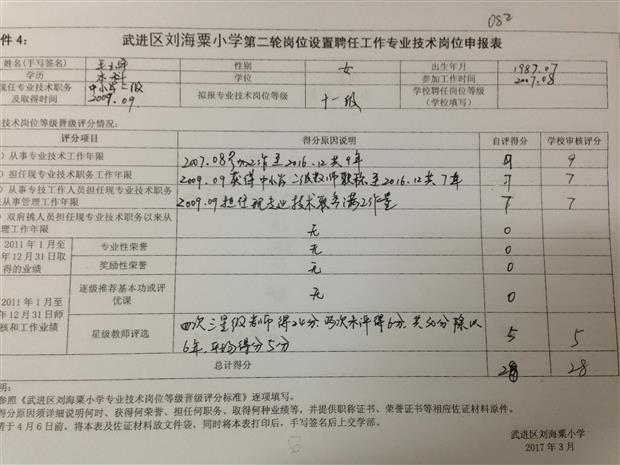 082
件4：
武进区刘海粟小学第二轮岗位设置聘任工作专业技术岗位申报表
姓名(手写签名) 性别 女 出生年月 1987.07
学历 本科 学位 参加工作时间 2007.08
现任专业技术职务及取得时间 2009.09. 拟报专业技术岗位等级 十一级 学校聘任岗位等级（学校填写）
技术岗位等级晋级评分情况：
评分项目 得分原因说明 自评得分 学校审核评分
）从事专业技术工作年限 2007.08 工作至2016.12共9年 9 9
）担任现专业技术职务工作年限 2009.09获得中小学二级教师职称至2016.12共7年 7 7
）从事专技工作人员担任现专业技术职务
从事管理工作年限 2009.09担任现专业技术职务满工作量 7 7
）双肩挑人员担任现专业技术职务以来从
理工作年限 无 0
2011年1月至
年12月31日取
得的业绩
专业性荣誉 无 0
奖励性荣誉 无 0
逐级推荐基本功或评优课 无 0
2011年1月至
年12月31日师
核和工作业绩
星级教师评选 四次三星级教师得24分，两次未评得6分，共30分除以
6年，平均得分5分 5 5
总计得分 28 28
明：
参照《武进区刘海粟小学专业技术岗位等级晋级评分标准》逐项填写。
得分原因须详细说明何时、获得何荣誉、担任何职务、取得何种业绩等，并提供职称证书、荣誉证书等相应佐证材料原件。
请于4月6日前，将本表及佐证材料放文件袋，同时将本表打印后，手写签名后上交学部。
武进区刘海粟小学
2017年3月